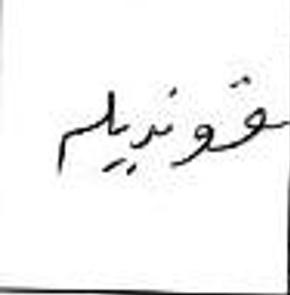 قوندیلم